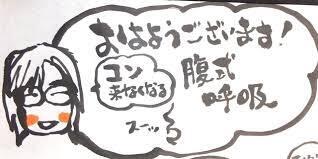 おはようございます!
腹式
呼吸
コン
来なくなる
スーッ